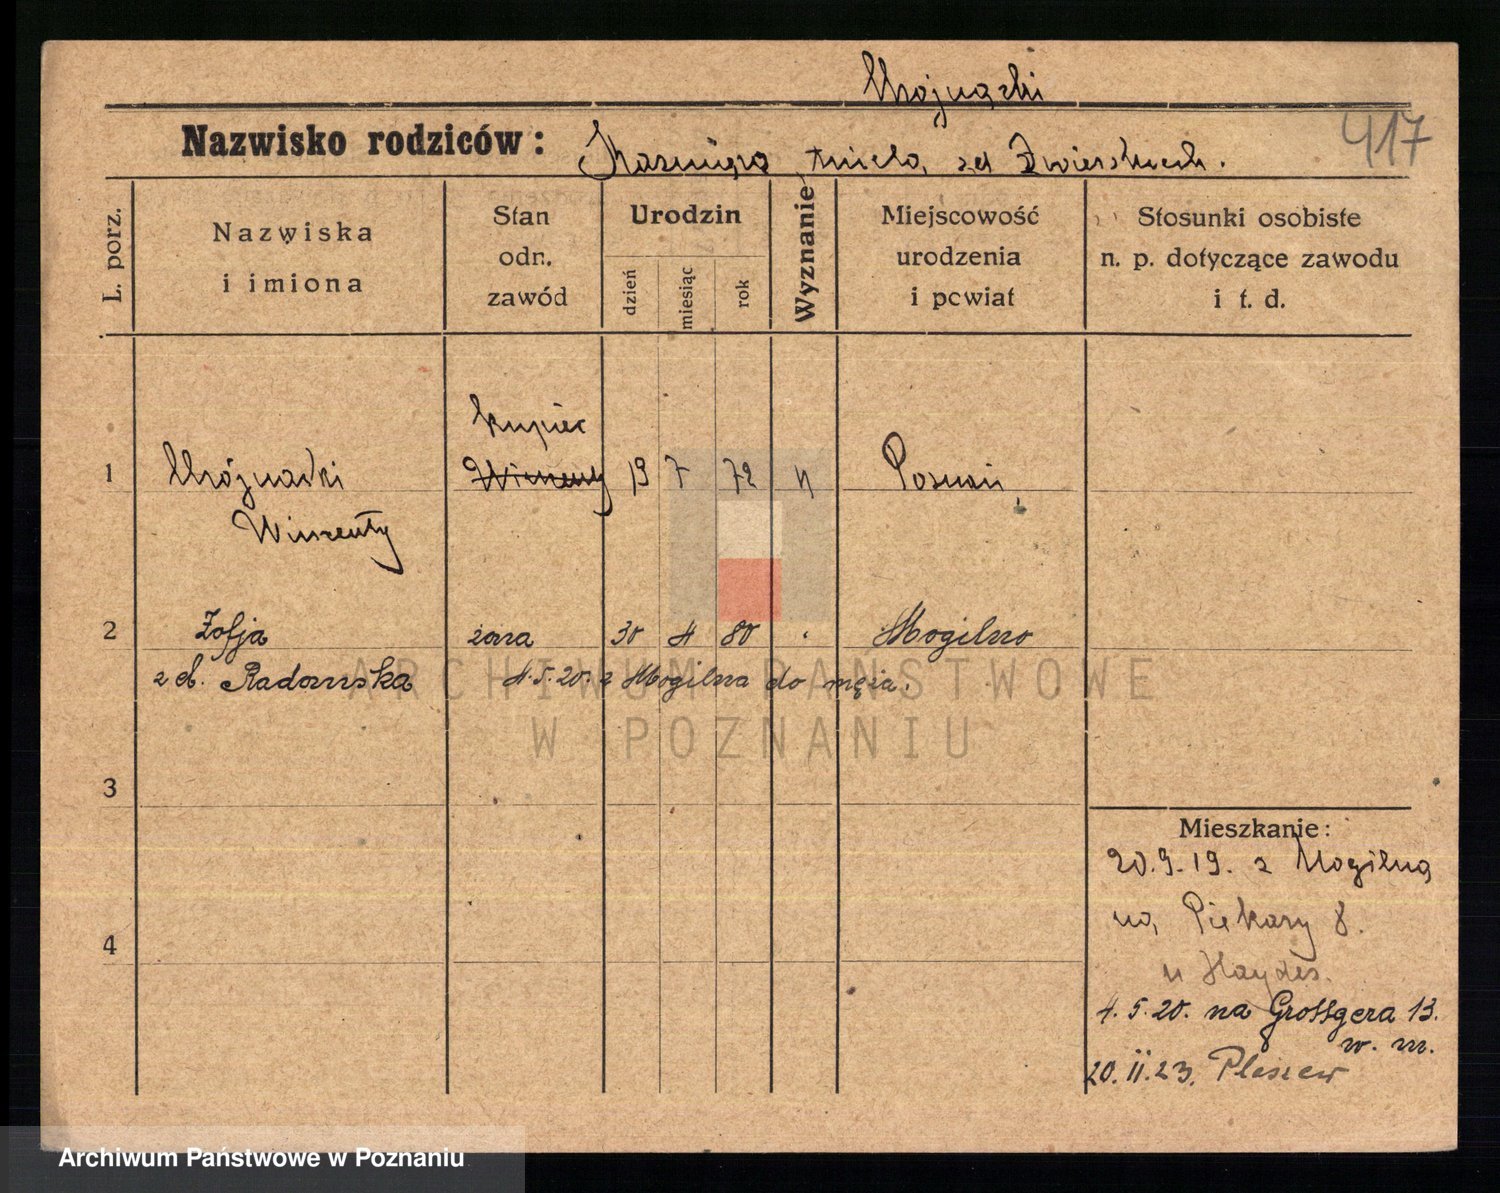 417
Nazwisko rodziców:
Kazmiera Aniela, zd
L. porz.
Nazwiska i imiona
Stan odn. zawód
Urodzin
dzień
miesiąc
rok
Wyznanie
Miejscowość urodzenia i powiat
Stosunki osobiste n. p. dotyczące zawodu i t. d.
kupiec
1
Wincenty
19 7 72
Poznań
Wincenty
2 Zofja żona 30 4 80 Mogilno
z d. Radomska 4.5.20. z Mogilna do męża.
ARCHIWUM PAŃSTWOWE
W POZNANIU
3
4
Mieszkanie:
20.9.19. z Mogilna
na Piekary 8.
u Haydes.
4.5.20. na Grossgera 13.
w. m.
20.II.23. Pleszew
Archiwum Państwowe w Poznaniu